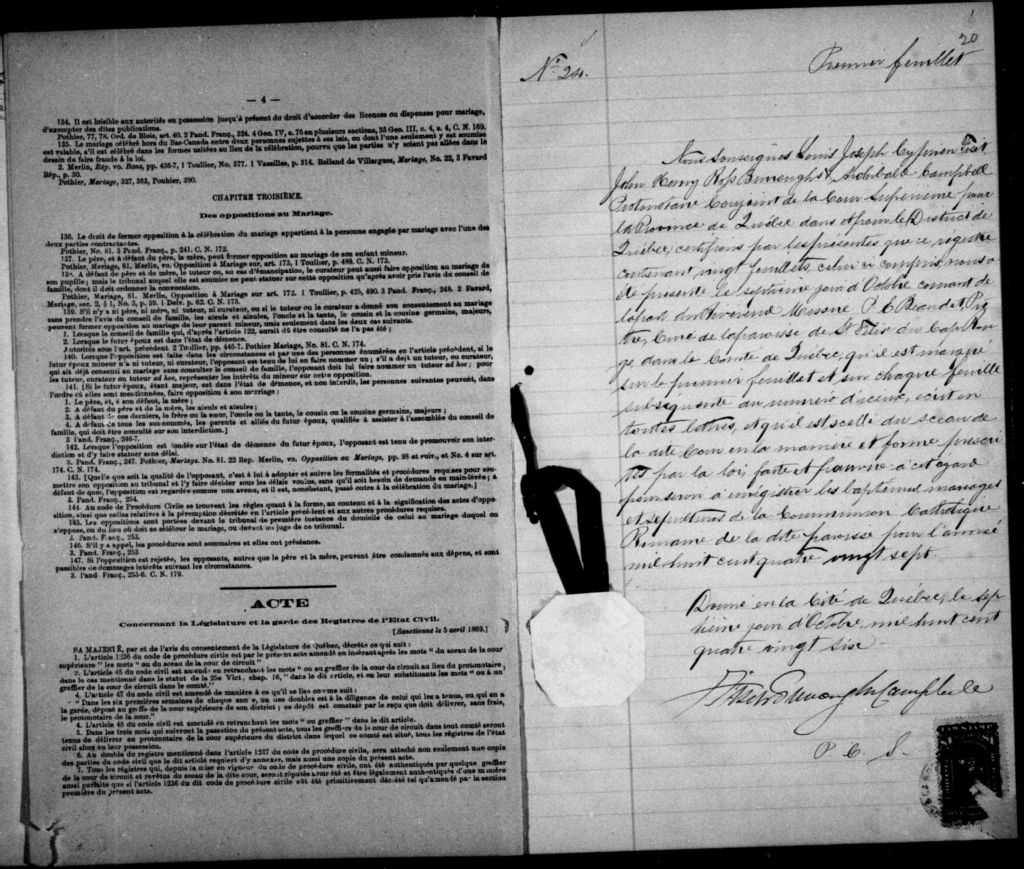 — 4 —
134. Il est loisible aux autorités en possession jusqu'à présent du droit d'accorder des licences ou dispenses pour mariage,
d'exempter des dites publications.
Pothier, 77, 78. Ord. de Blois, art. 40. 2 Pand. Franç., 324. 4 Geo. IV, c. 76 en plusieurs sections, 35 Geo. III, c. 4, s. 4, C. N. 169.
135. Le mariage célébré hors du Bas-Canada entre deux personnes sujettes à ses lois, ou dont l'une seulement y est soumise
est valable, s'il est célébré dans les formes usitées au lieu de la célébration, pourvu que les parties n'y soient pas allées dans le
dessin de faire fraude à la loi.
2. Merlin, Rép. vo. Bans, pp. 436-7, 1 Toullier, No. 577. 1 Vazeilles, p. 314. Rolland de Villargues, Mariage, No. 22, 3 Favard
Rép., p. 30.
Pothier, Mariage, 327, 363, Pouhier, 390.
CHAPITRE TROISIÈME.
Des oppositions au Mariage.
136. Le droit de former opposition à la célébration du mariage appartient à la personne engagée par mariage avec l'une des
deux parties contractantes.
Pothier, No. 81. 3 Pand. Franç., p. 241. C. N. 172.
137. Le père, et à défaut du père, la mère, peut former opposition au mariage de son enfant mineur.
Pothier, Mariage, 81, Merlin, vo. Opposition à Mariage sur art. 173, 1 Toullier, p. 489. C. N. 173.
138. A défaut de père et de mère, le tuteur ou, au cas d'émancipation, le curateur peut aussi faire opposition au mariage de
son pupille; mais le tribunal auquel elle est soumise ne peut statuer sur cette opposition qu'après avoir pris l'avis du conseil de
famille, dont il doit ordonner la convocation.
Pothier, Mariage, 81. Merlin, Opposition à Mariage sur art. 172. 1 Toullier, p. 425, 490. 3 Pand. Franç., 248. 2 Favard,
Mariage, sec. 2, § 1, No. 3, p. 59. 1 Delv. p. 62. C. N. 175.
139. S'il n'y a ni père, ni mère, ni tuteur, ni curateur, ou si le tuteur ou le curateur a donné son consentement au mariage
sans prendre l'avis du conseil de famille, les aïeuls et aïeules, l'oncle et la tante, le cousin et la cousine germains, majeurs,
peuvent former opposition au mariage de leur parent mineur, mais seulement dans les deux cas suivants.
1. Lorsque le conseil de famille qui, d'après l'article 122, aurait dû être consulté ne l'a pas été;
2. Lorsque le futur époux est dans l'état de démence.
Autorités sous l'art. précédent 2 Toullier, pp. 446-7. Pothier Mariage, No. 81. C. N. 174.
140. Lorsque l'opposition est faite dans les circonstances et par une des personnes énumérées en l'article précédent, si le
futur époux mineur n'a ni tuteur, ni curateur, l'opposant est tenu de lui en faire nommer un; s'il a déjà un tuteur, ou curateur,
qui ait déjà consenti au mariage sans consulter le conseil de famille, l'opposant doit lui faire nommer un tuteur ad hoc; pour
les tuteur, curateur ou tuteur ad hoc, représenter les intérêts du mineur sur cette opposition.
141. [Si le futur époux, étant majeur, est dans l'état de démence, et non interdit, les personnes suivantes peuvent, dans
l'ordre où elles sont mentionnées, faire opposition à son mariage:
1. Le père, et, à son défaut, la mère;
2. A défaut du père et de la mère, les aïeuls et aïeules;
3. A défaut de ces derniers, le frère ou la sœur, l'oncle ou la tante, le cousin ou la cousine germains, majeurs;
4. A défaut de tous les sus-nommés, les parents et alliés du futur époux, qualifiés à assister à l'assemblée du conseil de
famille, qui doit être consulté sur son interdiction.]
3 Pand. Franç., 246-7.
142. Lorsque l'opposition est fondée sur l'état de démence du futur époux, l'opposant est tenu de promouvoir son inter-
diction et d'y faire statuer sans délai.
3. Pand. Franç., 247. Pothier, Mariage. No. 81. 22 Rep. Merlin, vo. Opposition au Mariage, pp. 98 et suiv., et No. 4 sur art.
174. C. N. 174.
143. [Quelle que soit la qualité de l'opposant, c'est à lui à adopter et suivre les formalités et procédures requises pour sou-
mettre son opposition au tribunal et l'y faire décider sous les délais voulus, sans qu'il soit besoin de demande en main-levée; à
défaut de quoi, l'opposition est regardée comme non avenu, et il est, nonobstant, passé outre à la célébration du mariage.]
3. Pand. Franç., 254.
144. Au code de Procédure Civile se trouvent les règles quant à la forme, au contenu et à la signification des actes d'oppo-
sition, ainsi que celles relatives à la péremption décrétée en l'article précédent et aux autres procédures requises.
145. Les oppositions sont portées devant le tribunal de première instance du domicile de celui au mariage duquel on
s'oppose, ou du lieu où doit se célébrer le mariage, ou devant un juge de ce tribunal.
3. Pand. Franç., 253.
146. S'il y a appel, les procédures sont sommaires et elles ont préséance.
3. Pand. Franç., 253
147. Si l'opposition est rejetée, les opposants, autres que le père et la mère, peuvent être condamnés aux dépens, et sont
passibles de dommages intérêts suivant les circonstances.
3. Pand Franç., 255-6. C. N. 179.
ACTE
Concernant la Législature et la garde des Registres de l'Etat Civil.
[Sanctionné le 5 avril 1869.]
SA MAJESTÉ, par et de l'avis du consentement de la Législature de Québec, décrète ce qui suit:
1. L'article 1236 du code de procédure civile est par le présent acte amendé en insérant après les mots " du sceau de la cour
supérieure " les mots " ou du sceau de la cour de circuit "
2. L'article 45 du code civil est amendé en retranchant les mots " ou au greffier de la cour de circuit au lieu du protonotaire,
dans le cas mentionné dans le statut de la 25e Vict, chap. 16," dans le dit article, et en leur substituant les mots " ou à un
greffier de la cour de circuit dans le comté."
4. L'article 47 du code civil est amendé de manière à ce qu'il se lise comme suit:
" Dans les six premières semaines de chaque année, un des doubles est à la diligence de celui qui les a tenus, ou qui en a
la garde, déposé au greffe de la cour supérieure de son district; ce dépôt est constaté par le reçu que doit délivrer, sans frais,
le protonotaire de la cour."
4. L'article 48 du code civil est amendé en retranchant les mots " ou greffier " dans le dit article.
5. Dans les trois mois qui suivront la passation du présent acte, tous les greffiers de la cour de circuit dans tout comté seront
tenus de délivrer au protonotaire de la cour supérieure du district dans lequel ce comté est situé, tous les registres de l'état
civil alors en leur possession.
6. Au double du registre mentionné dans l'article 1237 du code de procédure civile, sera attaché non seulement une copie
des parties du code civil que le dit article requiert d'y annexer, mais aussi une copie du présent acte.
7. Tous les registres qui, depuis la mise en vigueur du code de procédure civile, ont été authentiqués par quelque greffier
de la cour de circuit et revêtus du sceau de la dite cour, seront réputés avoir été et être légalement authentiqués d'une manière
aussi parfaite que si l'article 1236 du dit code de procédure civile eût été primitivement décrété tel qu'amendé par la section
première du présent acte.
20
No. 24.
Premier feuillet
Nous Soussignés Louis Joseph Cyprien Fiset
John Henry Ross Burroughs & Archibald Campbell
Protonotaire Conjoint de la Cour Supérieure pour
la Province de Québec dans et pour le District de
Québec, certifions par les présentes que ce régistre
contenant vingt feuillets, celui ci compris, nous a
été présenté le septième jour d'Octobre courant de
la part du Révérend Messire P. E. Beaudet Prê
tre, Curé de la paroisse de St Félix du Cap Rou
ge dans le Comté de Québec, qu'il est marqué
sur le premier feuillet et sur chaque feuille
subséquente du numéro d'iceux, écrit en
toutes lettres, et qu'il est scellé du sceau de
la dite Cour en la manière et forme prescri
tes par la loi faite et pourvue à cet égard
pour servir à enrégistrer les baptêmes, mariages
et sépultures de la Communion Catholique
Romaine de la dite paroisse pour l'année
mil huit cent quatre vingt sept.
Donné en la Cité de Québec, le sep
tième jour d'Octobre mil huit cent
quatre vingt six.
Fiset Burroughs Campbell
P. C. S.